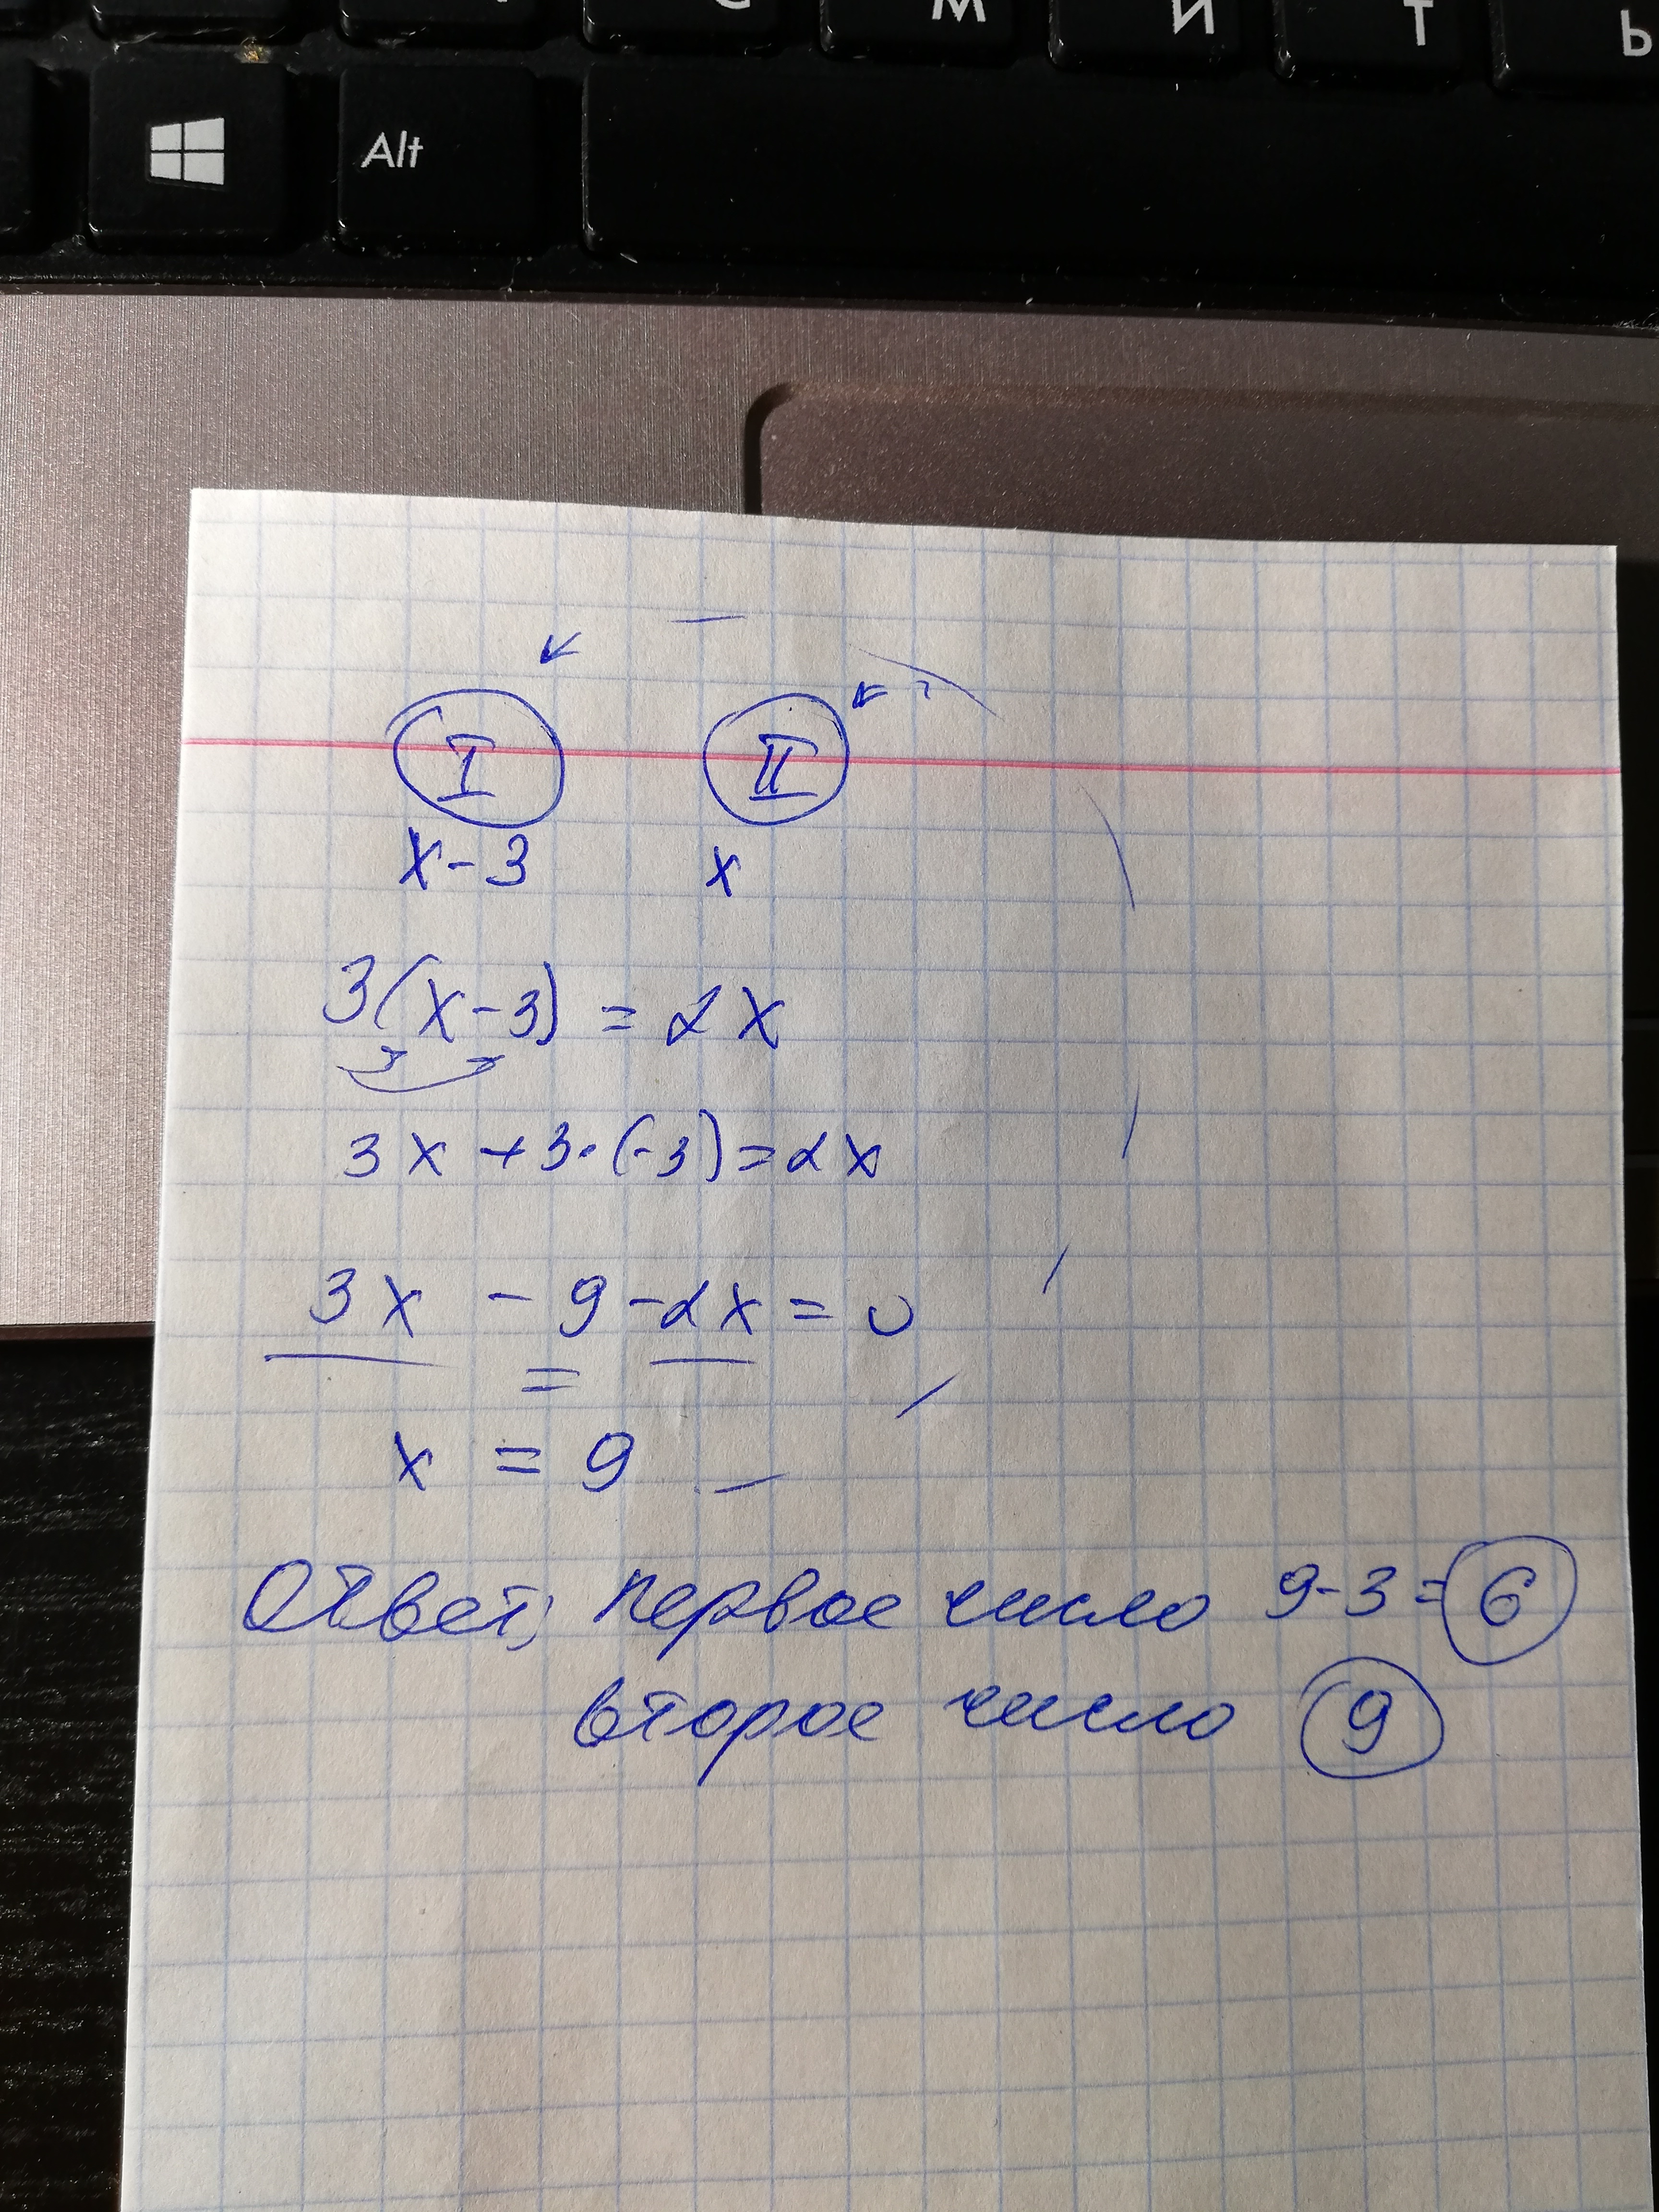 С М И Т Ь
Alt
I II
x-3 x
3(x-3) = 2x
3x + 3·(-3) = 2x
3x - 9 - 2x = 0
x = 9
Ответ; первое число 9-3=6
второе число 9